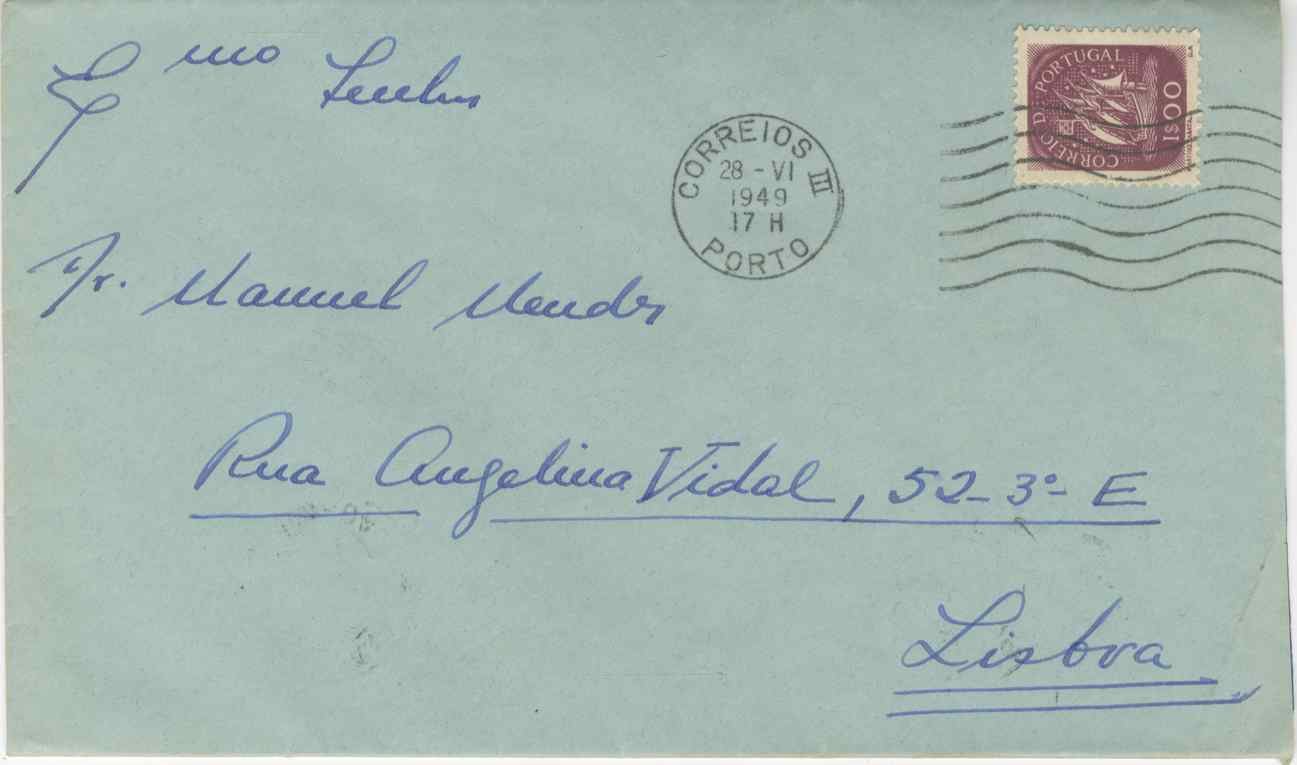 Exmo Senhor
Dr. Manuel Mendes
Rua Angelina Vidal, 52-3º- E
Lisboa
CORREIOS III
28 - VI
1949
17 H
PORTO
CORREIO DE PORTUGAL
1$00